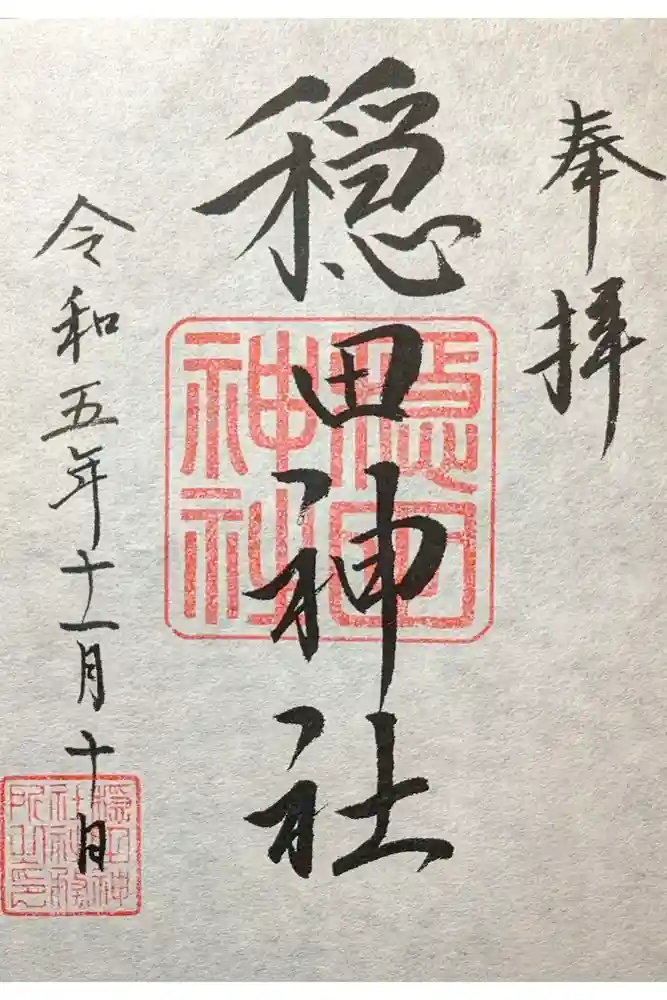 奉拝
穏田神社
令和五年十一月十日
穏田神社
穏田神社社務所之印